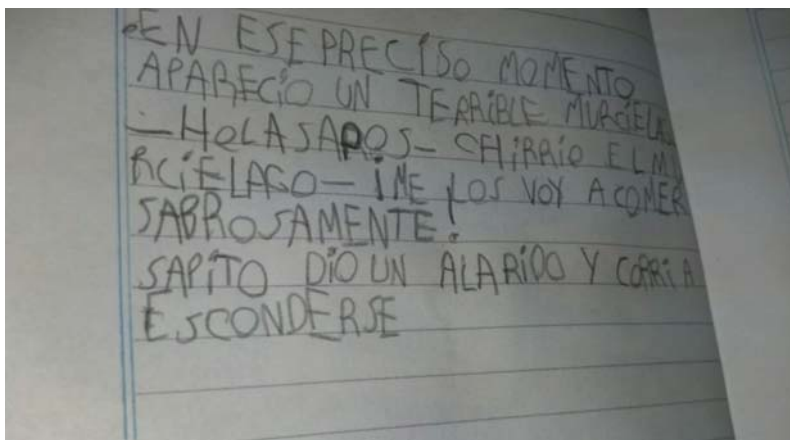 EN ESE PRECISO MOMENTO
APARECIO UN TERRIBLE MURCIELA
— HOLA SAPOS — CHIRRIO EL M
RCIELAGO — ¡ME LOS VOY A COMER
SABROSAMENTE!
SAPITO DIO UN ALARIDO Y CORRI A
ESCONDERSE